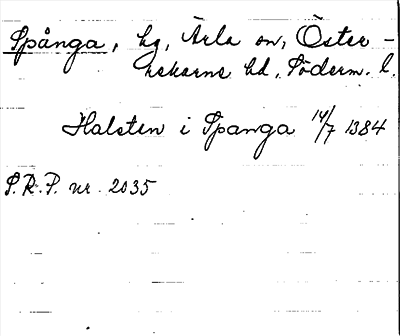 Spånga, hg, Ärla sn, Öster-
rekarne hd, Söderm. l.
Halsten i Spanga 14/7 1384
S.R.P. nr. 2035